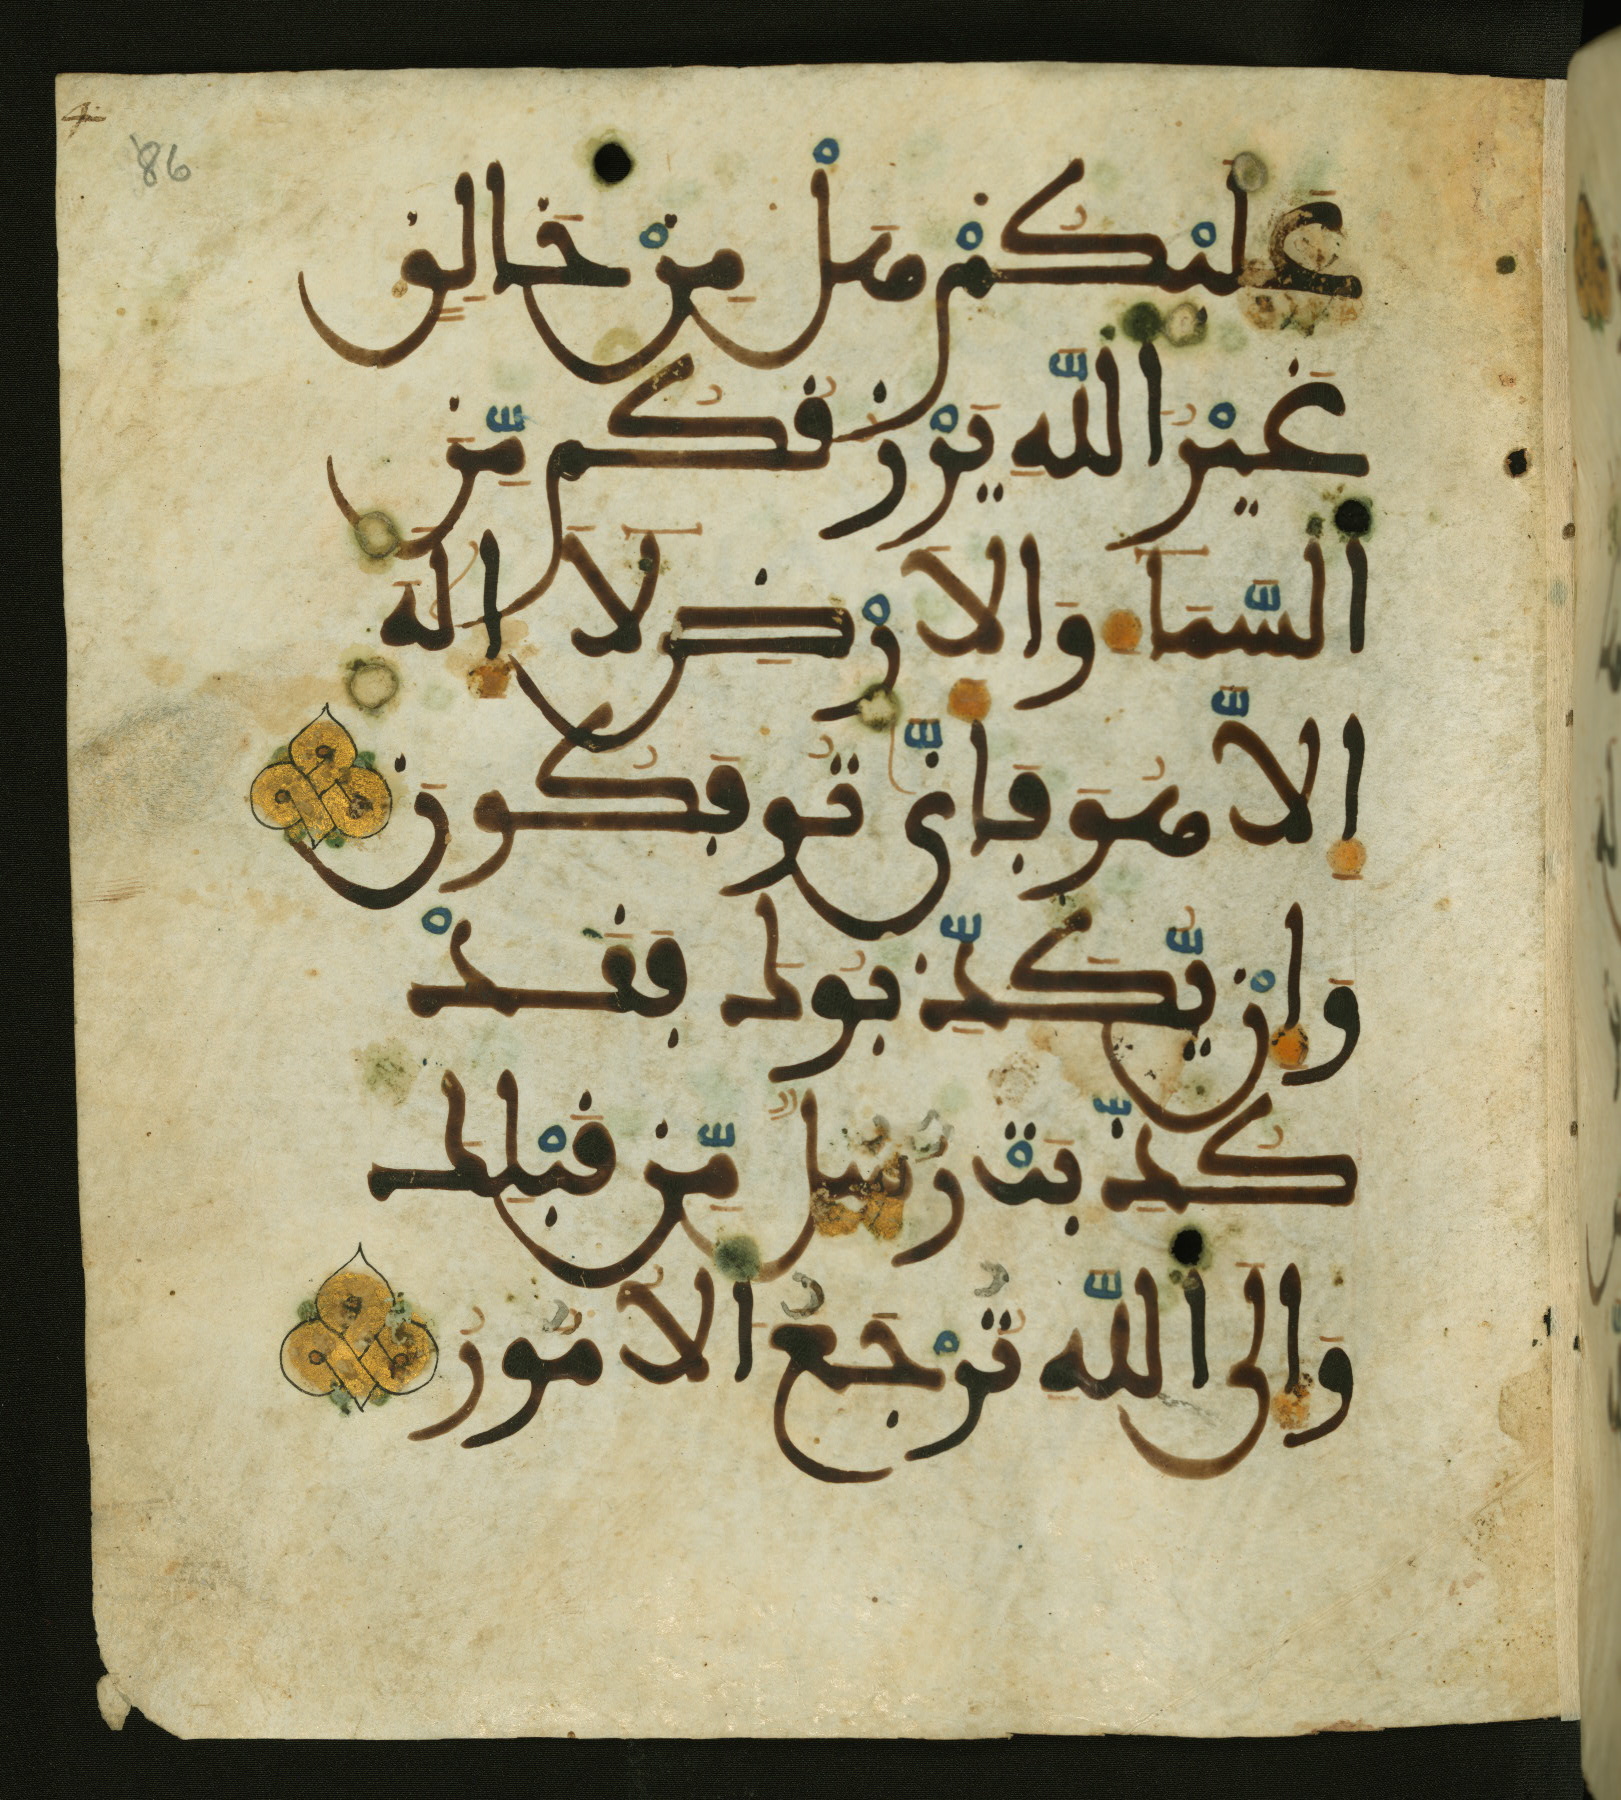 86
عَلَيْكُمْ هَلْ مِنْ خَالِقٍ
غَيْرُ اللَّهِ يَرْزُقُكُم مِّنَ
السَّمَآءِ وَالَارْضِ لَآ إِلَٰهَ
إِلَّا هُوَ فَأَنَّىٰ تُوفَكُونَ
وَإِنْ يُّكَذِّبُوكَ فَقَدْ
كُذِّبَتْ رُسُلٌ مِّن قَبْلِكَ
وَإِلَى اللَّهِ تُرْجَعُ الُامُورُ